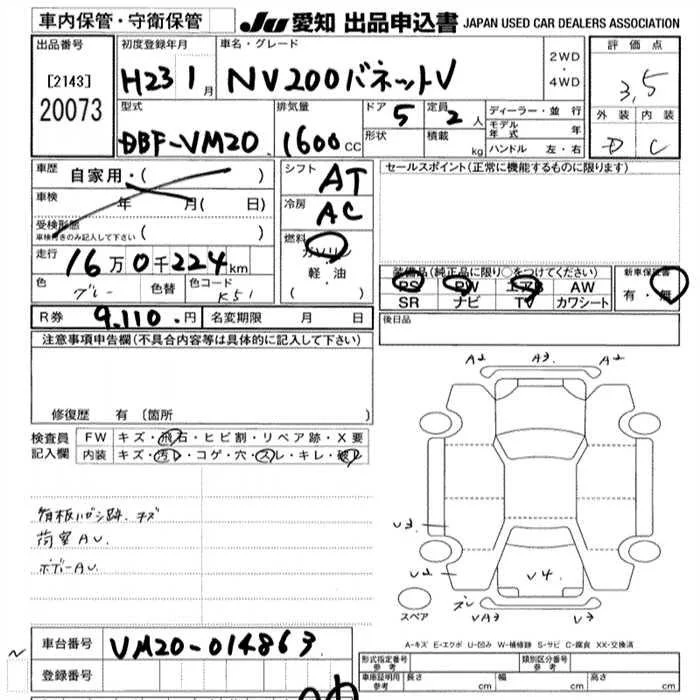 車内保管・守衛保管
JU 愛知 出品申込書 JAPAN USED CAR DEALERS ASSOCIATION
出品番号
[2143]
20073
初度登録年月
H23 1月
車名・グレード
NV200バネットV
2WD
・
4WD
評価点
3,5
外装 内装
D C
型式
DBF-VM20
排気量
1600cc
ドア 5
定員 2人
形状
積載 kg
ディーラー・並行
モデル年式 年
ハンドル 左・右
車歴 自家用・( )
車検 年 月( 日)
受検形態 ( )
車検付きのみ記入して下さい
走行 16万0千224km
色 グレー
色替
色コード K51
シフト AT
冷房 AC
燃料
ガソリン
軽油
( )
セールスポイント(正常に機能するものに限ります)
装備品(純正品に限り○をつけてください)
PS PW エアB AW
SR ナビ TV カワシート
新車保証書
有・無
R券 9,110円
名変期限 月 日
後日品
注意事項申告欄(不具合内容等は具体的に記入して下さい)
修復歴 有 〔箇所 〕
検査員記入欄
FW キズ・飛石・ヒビ割・リペア跡・X要
内装 キズ・汚レ・コゲ・穴・スレ・キレ・破レ
荷室AU.
ボデーAU.
A2 A3 A2
U3
U2
V4
ズレ VA3 V3
スペア
A-キズ E-エクボ U-凹み W-補修跡 S-サビ C-腐食 XX-交換済
車台番号 VM20-014863
登録番号
形式指定番号 参考
類別区分番号 参考
車庫証明用 参考 長さ cm 幅 cm 高さ cm